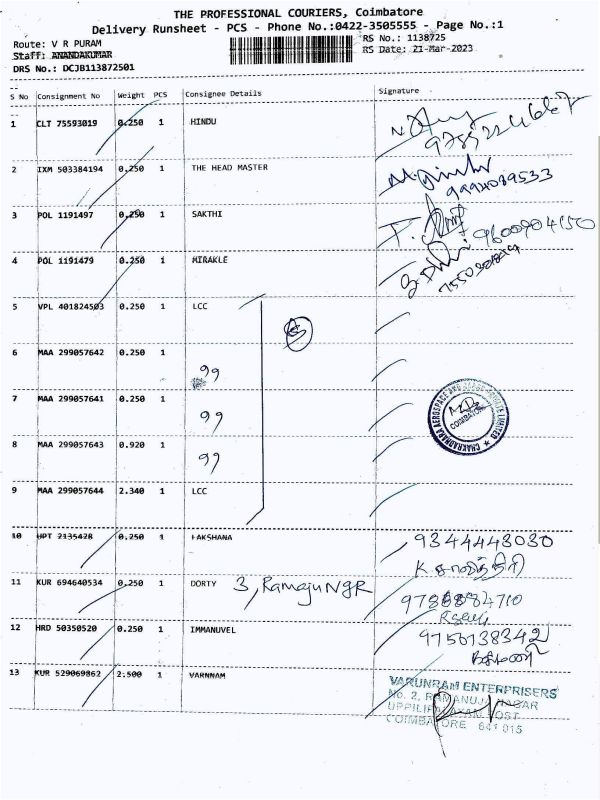 THE PROFESSIONAL COURIERS, Coimbatore
Delivery Runsheet - PCS - Phone No.:0422-3505555 - Page No.:1
Route: V R PURAM RS No.: 1138725
Staff: ANANDAKUMAR RS Date: 21-Mar-2023
DRS No.: DCJB113872501
S No Consignment No Weight PCS Consignee Details Signature
1 CLT 75593019 0.250 1 HINDU
2 IXM 503384194 0.250 1 THE HEAD MASTER
9994089533
3 POL 1191497 0.250 1 SAKTHI
9600904150
4 POL 1191479 0.250 1 MIRAKLE
5 VPL 401824503 0.250 1 LCC
6 MAA 299057642 0.250 1
99
7 MAA 299057641 0.250 1
99
8 MAA 299057643 0.920 1
99
CHAKRADHARA AEROSPACE AND CARGO PRIVATE LIMITED
COIMBATORE
9 MAA 299057644 2.340 1 LCC
10 HPT 2135428 0.250 1 LAKSHANA 9344443030
11 KUR 694640534 0.250 1 DORTY 3, Ramaju NGR
12 HRD 50350520 0.250 1 IMMANUVEL 9756138342
13 KUR 529069862 2.500 1 VARNNAM
VARUNRAM ENTERPRISERS
No. 2, RAMANUJA NAGAR
UPPILIPALAYAM POST
COIMBATORE 641 015